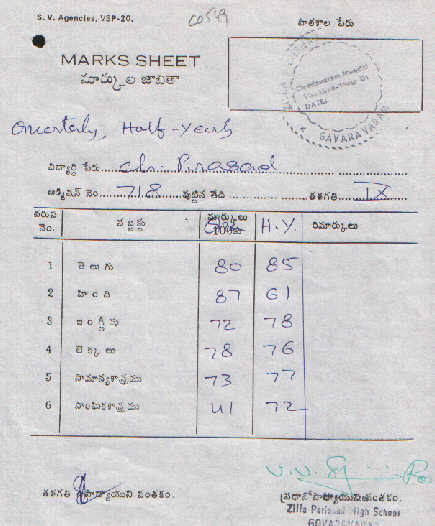 S. V. Agencies, VSP-20.
C0549
పాఠశాల పేరు
MARKS SHEET
మార్కుల జాబితా
GAVARAVARAM
Quarterly, Half-Yearly
విద్యార్థి పేరు Ch. Prasad
అడ్మిషన్ నెం. 718 పుట్టిన తేది తరగతి IX
వరుస నెం. సబ్జక్టు మార్కులు H.Y. రిమార్కులు
1 తెలుగు 80 85
2 హింది 87 61
3 ఇంగ్లీషు 72 78
4 లెక్కలు 78 76
5 సామాన్యశాస్త్రము 73 77
6 సాంఘికశాస్త్రము 41 72
తరగతి ఉపాధ్యాయుని సంతకం.
ప్రధానోపాధ్యాయుని సంతకం.
Zilla Parishad High School
GOVARAVARAM